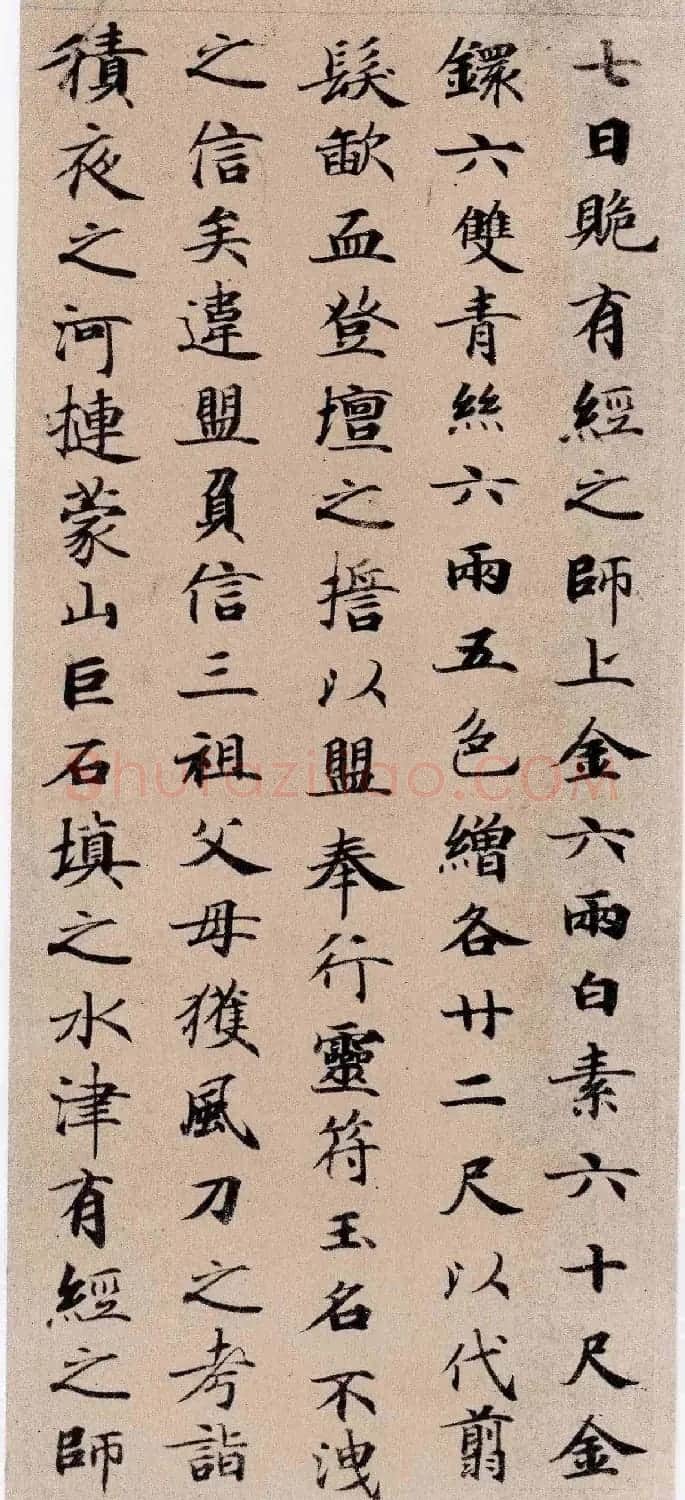 七日賄有經之師上金六兩白素六十尺金
鐶六雙青絲六兩五色繒各廿二尺以代翦
髮歃血登壇之擔以盟奉行靈符玉名不洩
之信矣違盟負信三祖父母獲風刀之考詣
積夜之河摙蒙山巨石填之水津有經之師